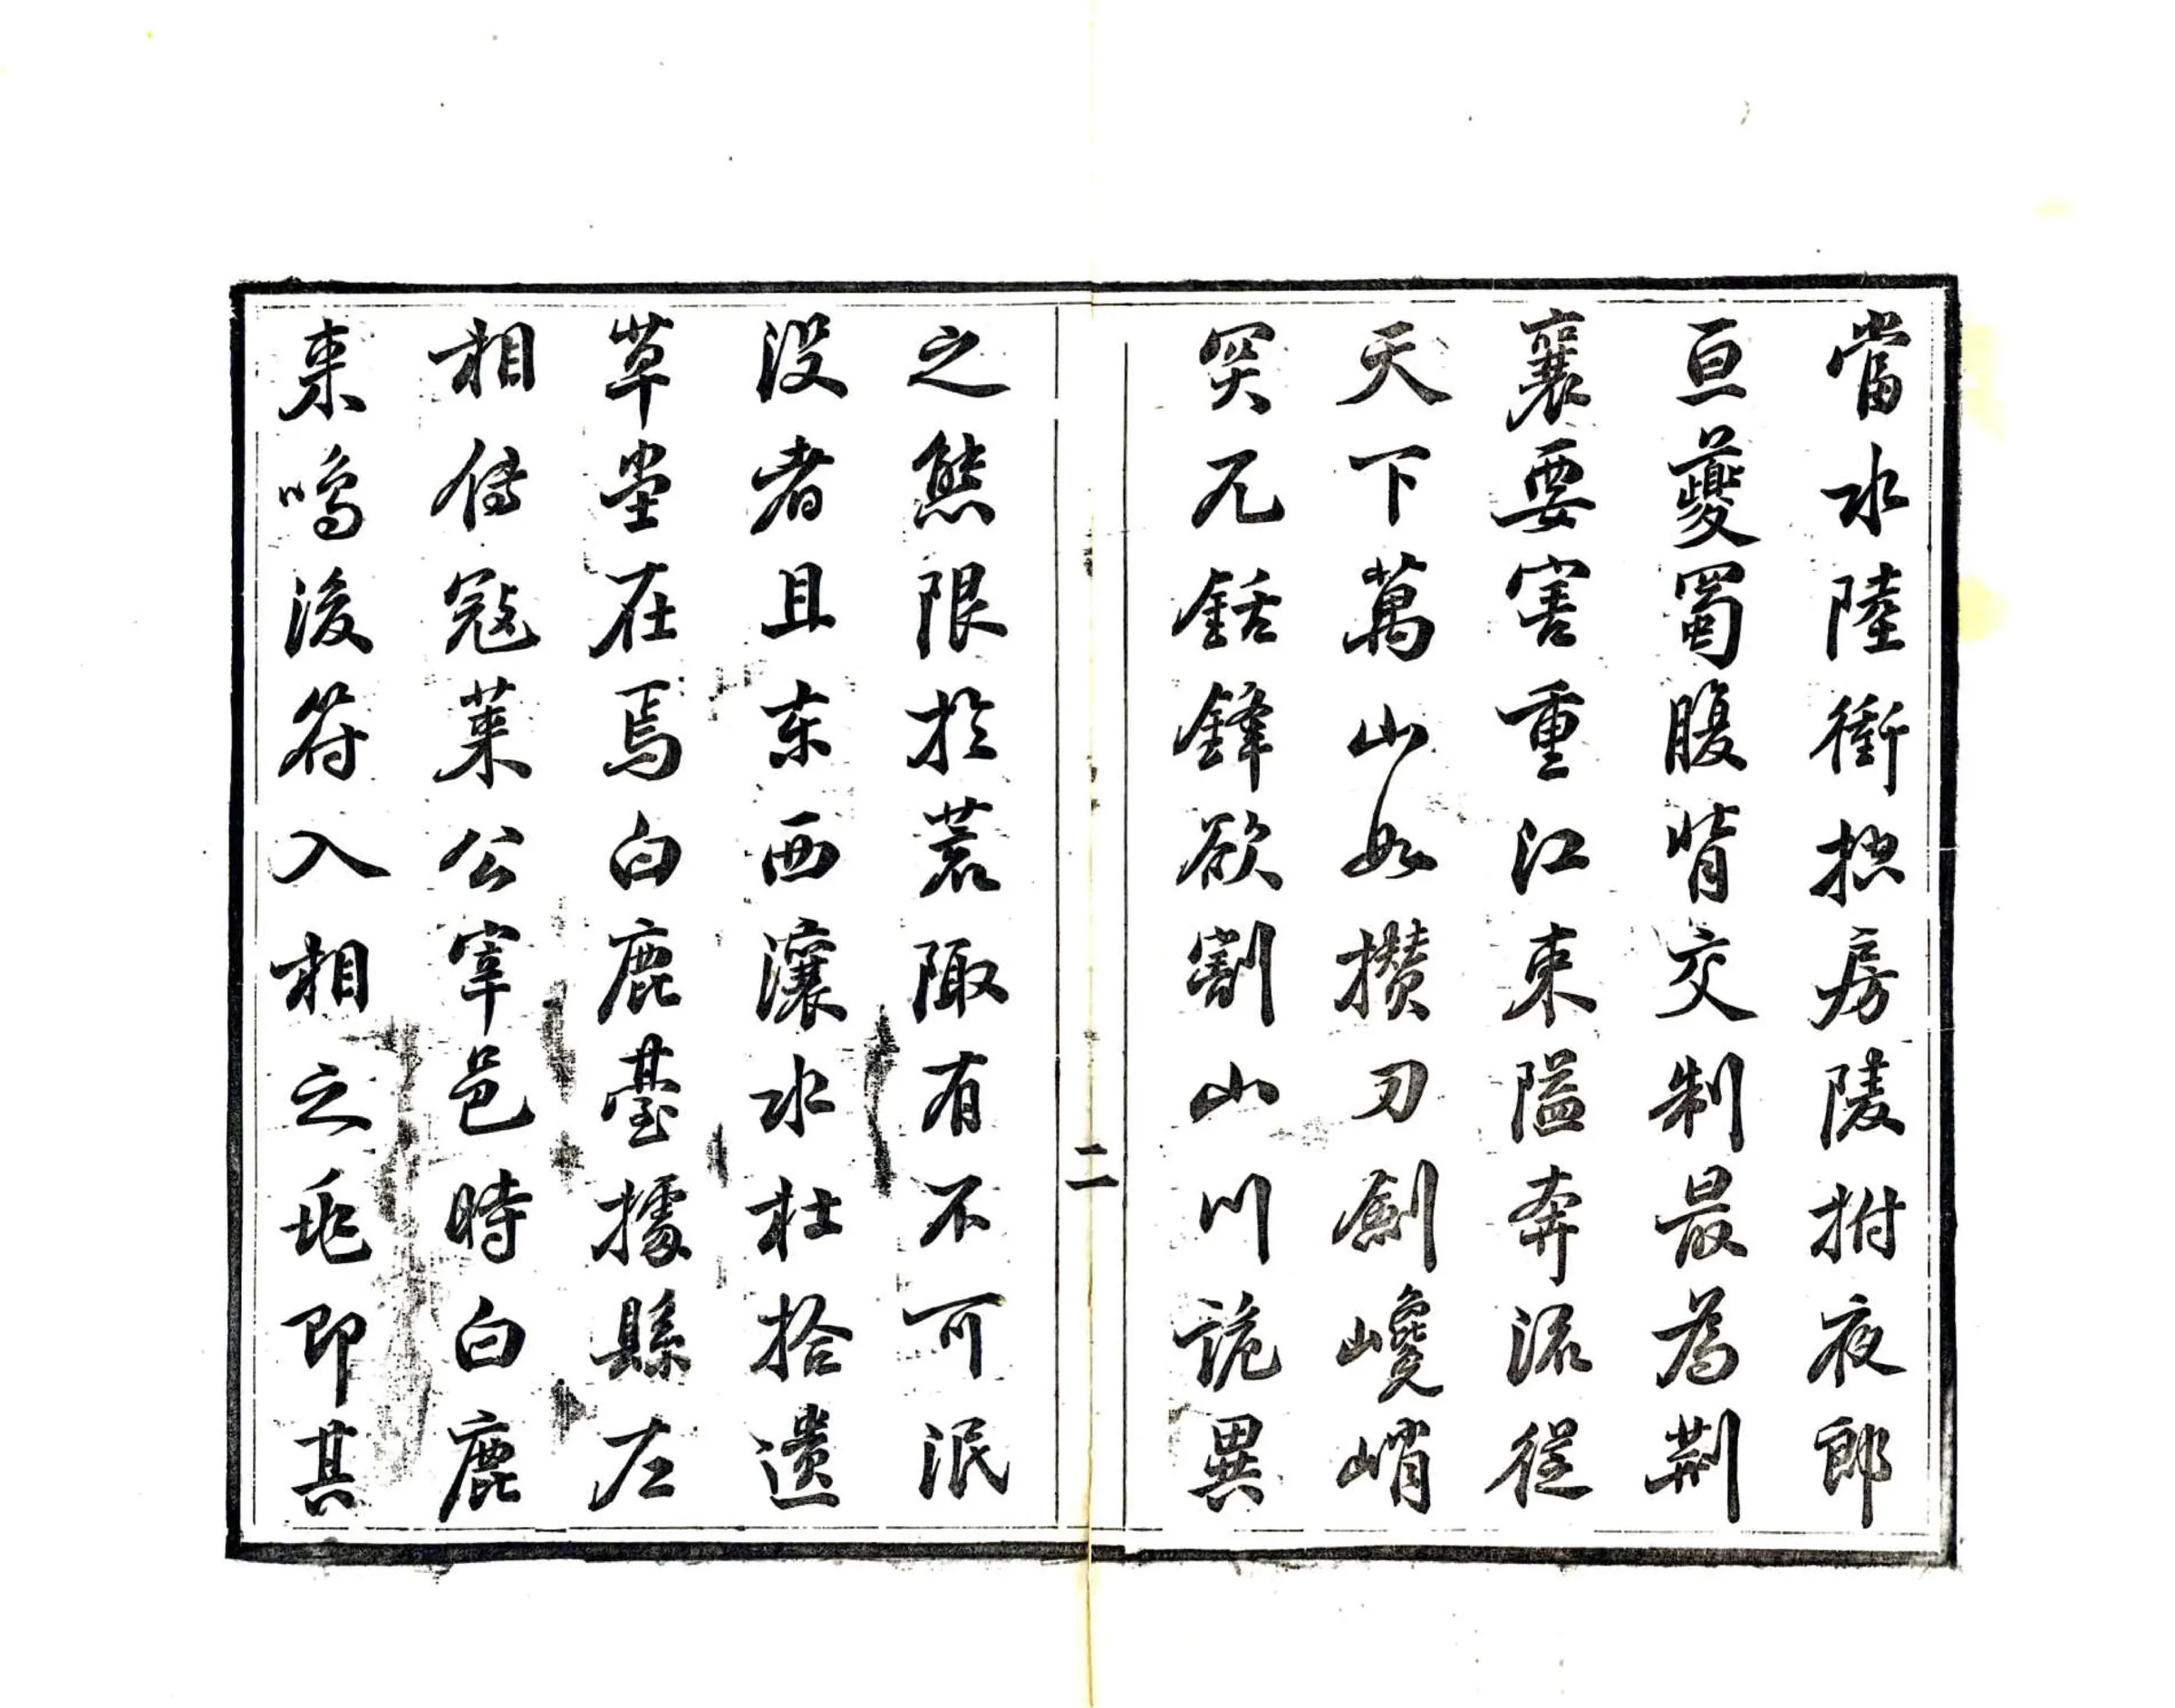 當水陸衝控房陵拊夜郎
亘夔蜀腹背交制最為荆
襄要害重江束隘奔流從
天下萬山如攢刀劍巉峭
突兀銛鋒欲割山川詭異
二
之態限於荒陬有不可泯
没者且东西瀼水杜拾遺
草堂在焉白鹿臺據縣左
相傳寇萊公宰邑時白鹿
来鳴後符入相之兆即其